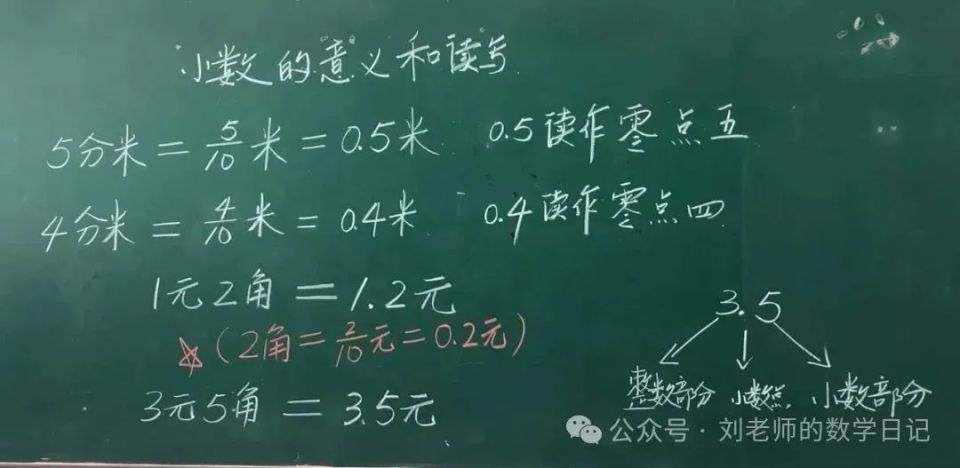 小数的意义和读写
5分米=5/10米=0.5米 0.5读作零点五
4分米=4/10米=0.4米 0.4读作零点四
1元2角=1.2元
☆(2角=2/10元=0.2元)
3元5角=3.5元
3.5
整数部分 小数点 小数部分
公众号·刘老师的数学日记